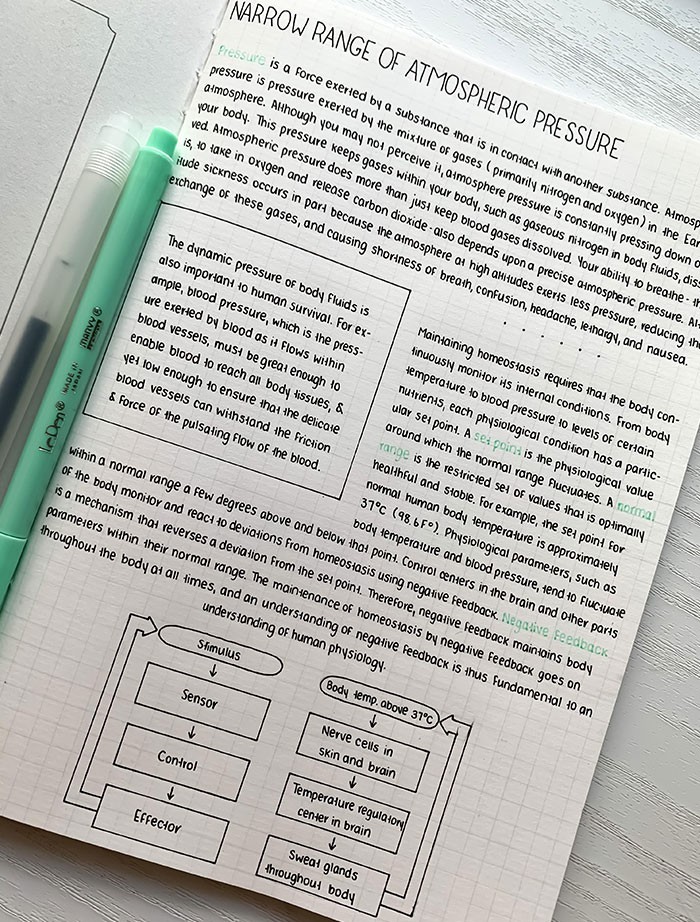 NARROW RANGE OF ATMOSPHERIC PRESSURE
Pressure is a force exerted by a substance that is in contact with another substance. Atmosp
pressure is pressure exerted by the mixture of gases (primarily nitrogen and oxygen) in the Ea
atmosphere. Although you may not perceive it, atmosphere pressure is constantly pressing down o
your body. This pressure keeps gases within your body, such as gaseous nitrogen in body fluids, diss
ved. Atmospheric pressure does more than just keep blood gases dissolved. Your ability to breathe - th
is, to take in oxygen and release carbon dioxide - also depends upon a precise atmospheric pressure. Al
itude sickness occurs in part because the atmosphere at high altitudes exerts less pressure, reducing the
exchange of these gases, and causing shortness of breath, confusion, headache, lethargy, and nausea.
The dynamic pressure of body fluids is
also important to human survival. For ex-
ample, blood pressure, which is the press-
ure exerted by blood as it flows within
blood vessels, must be great enough to
enable blood to reach all body tissues, &
yet low enough to ensure that the delicate
blood vessels can withstand the friction
& force of the pulsating flow of the blood.
Maintaining homeostasis requires that the body con-
tinuously monitor its internal conditions. From body
temperature to blood pressure to levels of certain
nutrients, each physiological condition has a partic-
ular set point. A set point is the physiological value
around which the normal range fluctuates. A normal
range is the restricted set of values that is optimally
healthful and stable. For example, the set point for
normal human body temperature is approximately
37°C (98.6F°). Physiological parameters, such as
body temperature and blood pressure, tend to fluctuate
within a normal range a few degrees above and below that point. Control centers in the brain and other parts
of the body monitor and react to deviations from homeostasis using negative feedback. Negative Feedback
is a mechanism that reverses a deviation from the set point. Therefore, negative feedback maintains body
parameters within their normal range. The maintenance of homeostasis by negative feedback goes on
throughout the body at all times, and an understanding of negative feedback is thus fundamental to an
understanding of human physiology.
Stimulus
Sensor
Control
Effector
Body temp. above 37°C
Nerve cells in
skin and brain
Temperature regulatory
center in brain
Sweat glands
throughout body
LePen®
MADE IN
MARVY®